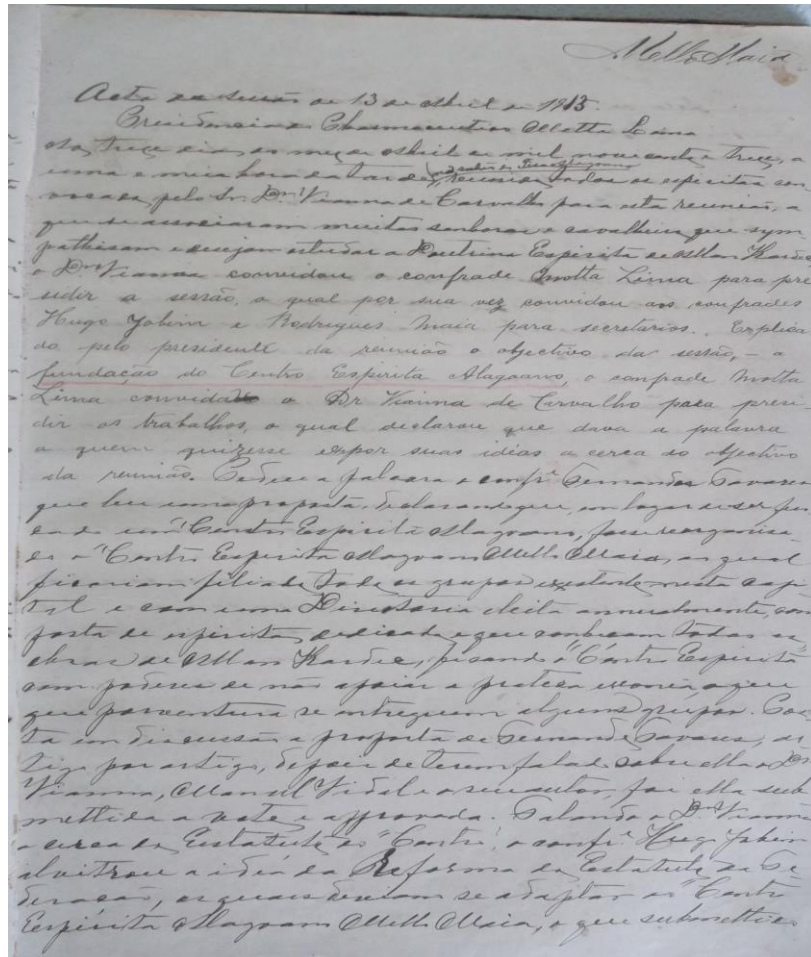 Mello Maia
Acta da sessão de 13 de Abril de 1913.
Presidencia do Pharmaceutico Motta Lima
Aos treze dias do mez de Abril de mil nove centos e treze, a
uma e meia hora da tarde, reunidos todos os espiritas con
vocados pelo Sr. Dr. Vianna de Carvalho para esta reunião, a
que se associaram muitas senhoras e cavalheiros que sym
pathisam e desejam estudar a Doutrina Espirita de Allan Kardec
o Dr. Vianna convidou o confrade Motta Lima para pre
sidir a sessão, o qual por sua vez convidou aos confrades
Hugo Jobim e Rodrigues Maia para secretarios. Explica
do pelo presidente da reunião o objectivo da sessão, – a
fundação do Centro Espirita Alagoano, o confrade Motta
Lima convida o Dr Vianna de Carvalho para presi
dir os trabalhos, o qual declarou que dava a palavra
a quem quizesse expor suas idéas a cerca do objectivo
da reunião. Pediu a palavra o confr. Fernandes Tavares
que leu uma proposta, declarando que, em lugar de ser fun
dado um "Centro Espirita Alagoano, fosse reorganisa-
do o "Centro Espirita Alagoano Mello Maia, ao qual
ficariam filiados todos os grupos existentes nesta capi
tal e com uma Directoria eleita annualmente, com
posta de espiritas dedicados e que conheçam todas as
obras de Allan Kardec, ficando o "Centro Espirita
com poderes de não apoiar a
que porventura se entreguem alguns grupos. Pos
ta em discussão a proposta de Fernandes Tavares, ar
tigo por artigo, depois de terem falado sobre ella o Dr.
Vianna, Manoel Vidal e o seu autor, foi ella sub
mettida a voto e approvada. Falando o Dr. Vianna
a cerca dos Estatutos do "Centro", o confr. Hugo Jobim
alvitrou a idéa da Reforma dos Estatutos da Fe
deração, os quaes deviam se adaptar ao "Centro
Espirita Alagoano Mello Maia, o que submettido